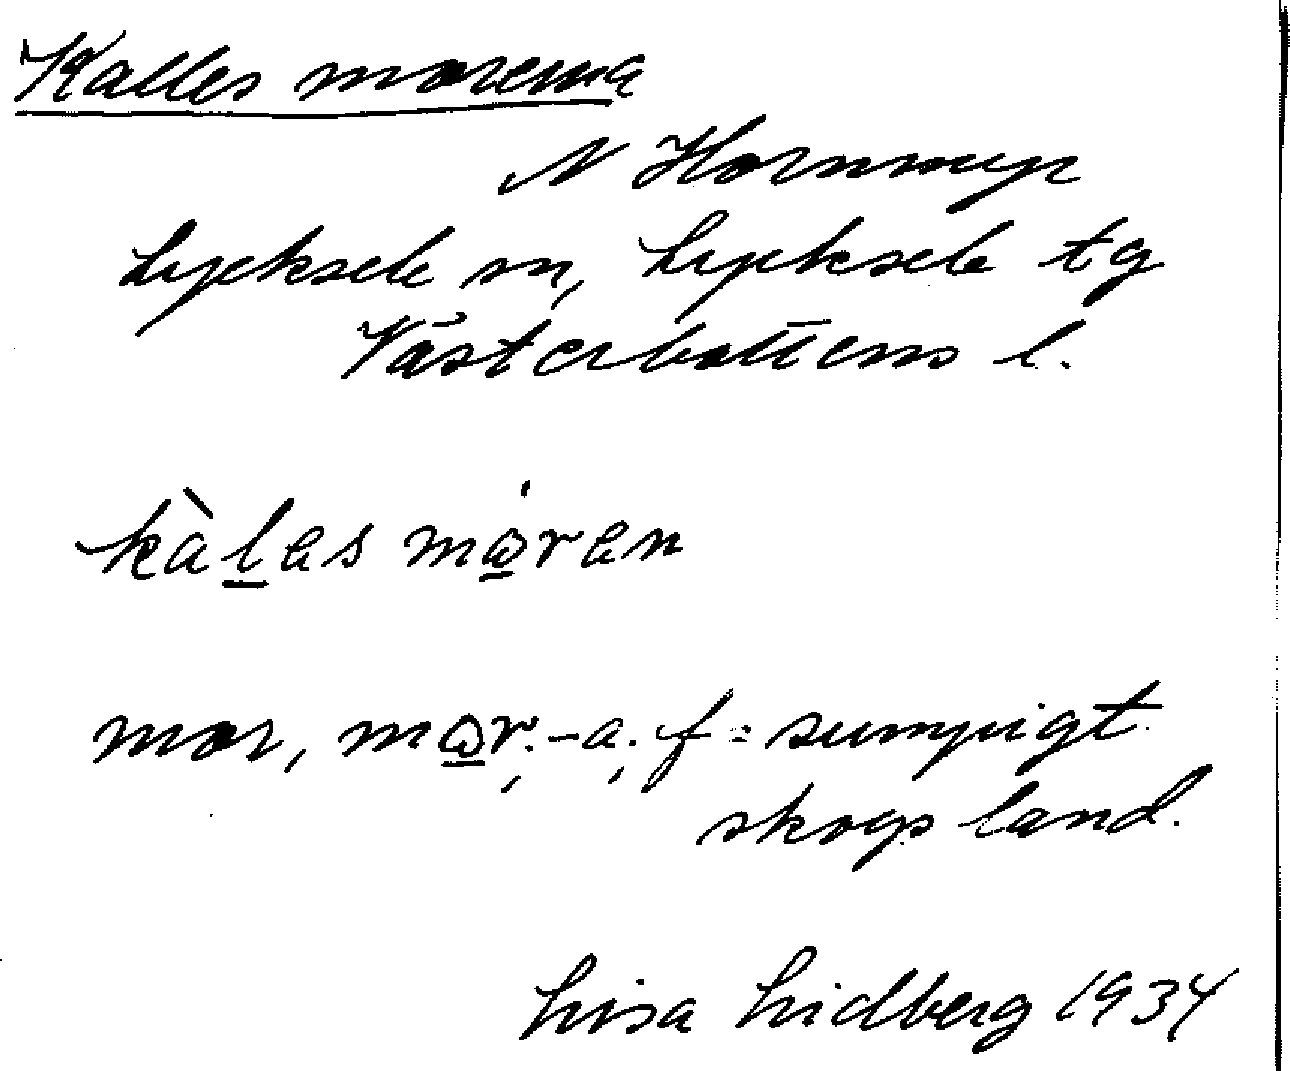 Kalles morerna
N Hornmyr
Lycksele sn, Lycksele tg
Västerbottens l.
kàlas mo̱ran
mor, mo̱r, -a, f = sumpigt
skogsland.
Lisa Lidberg 1934